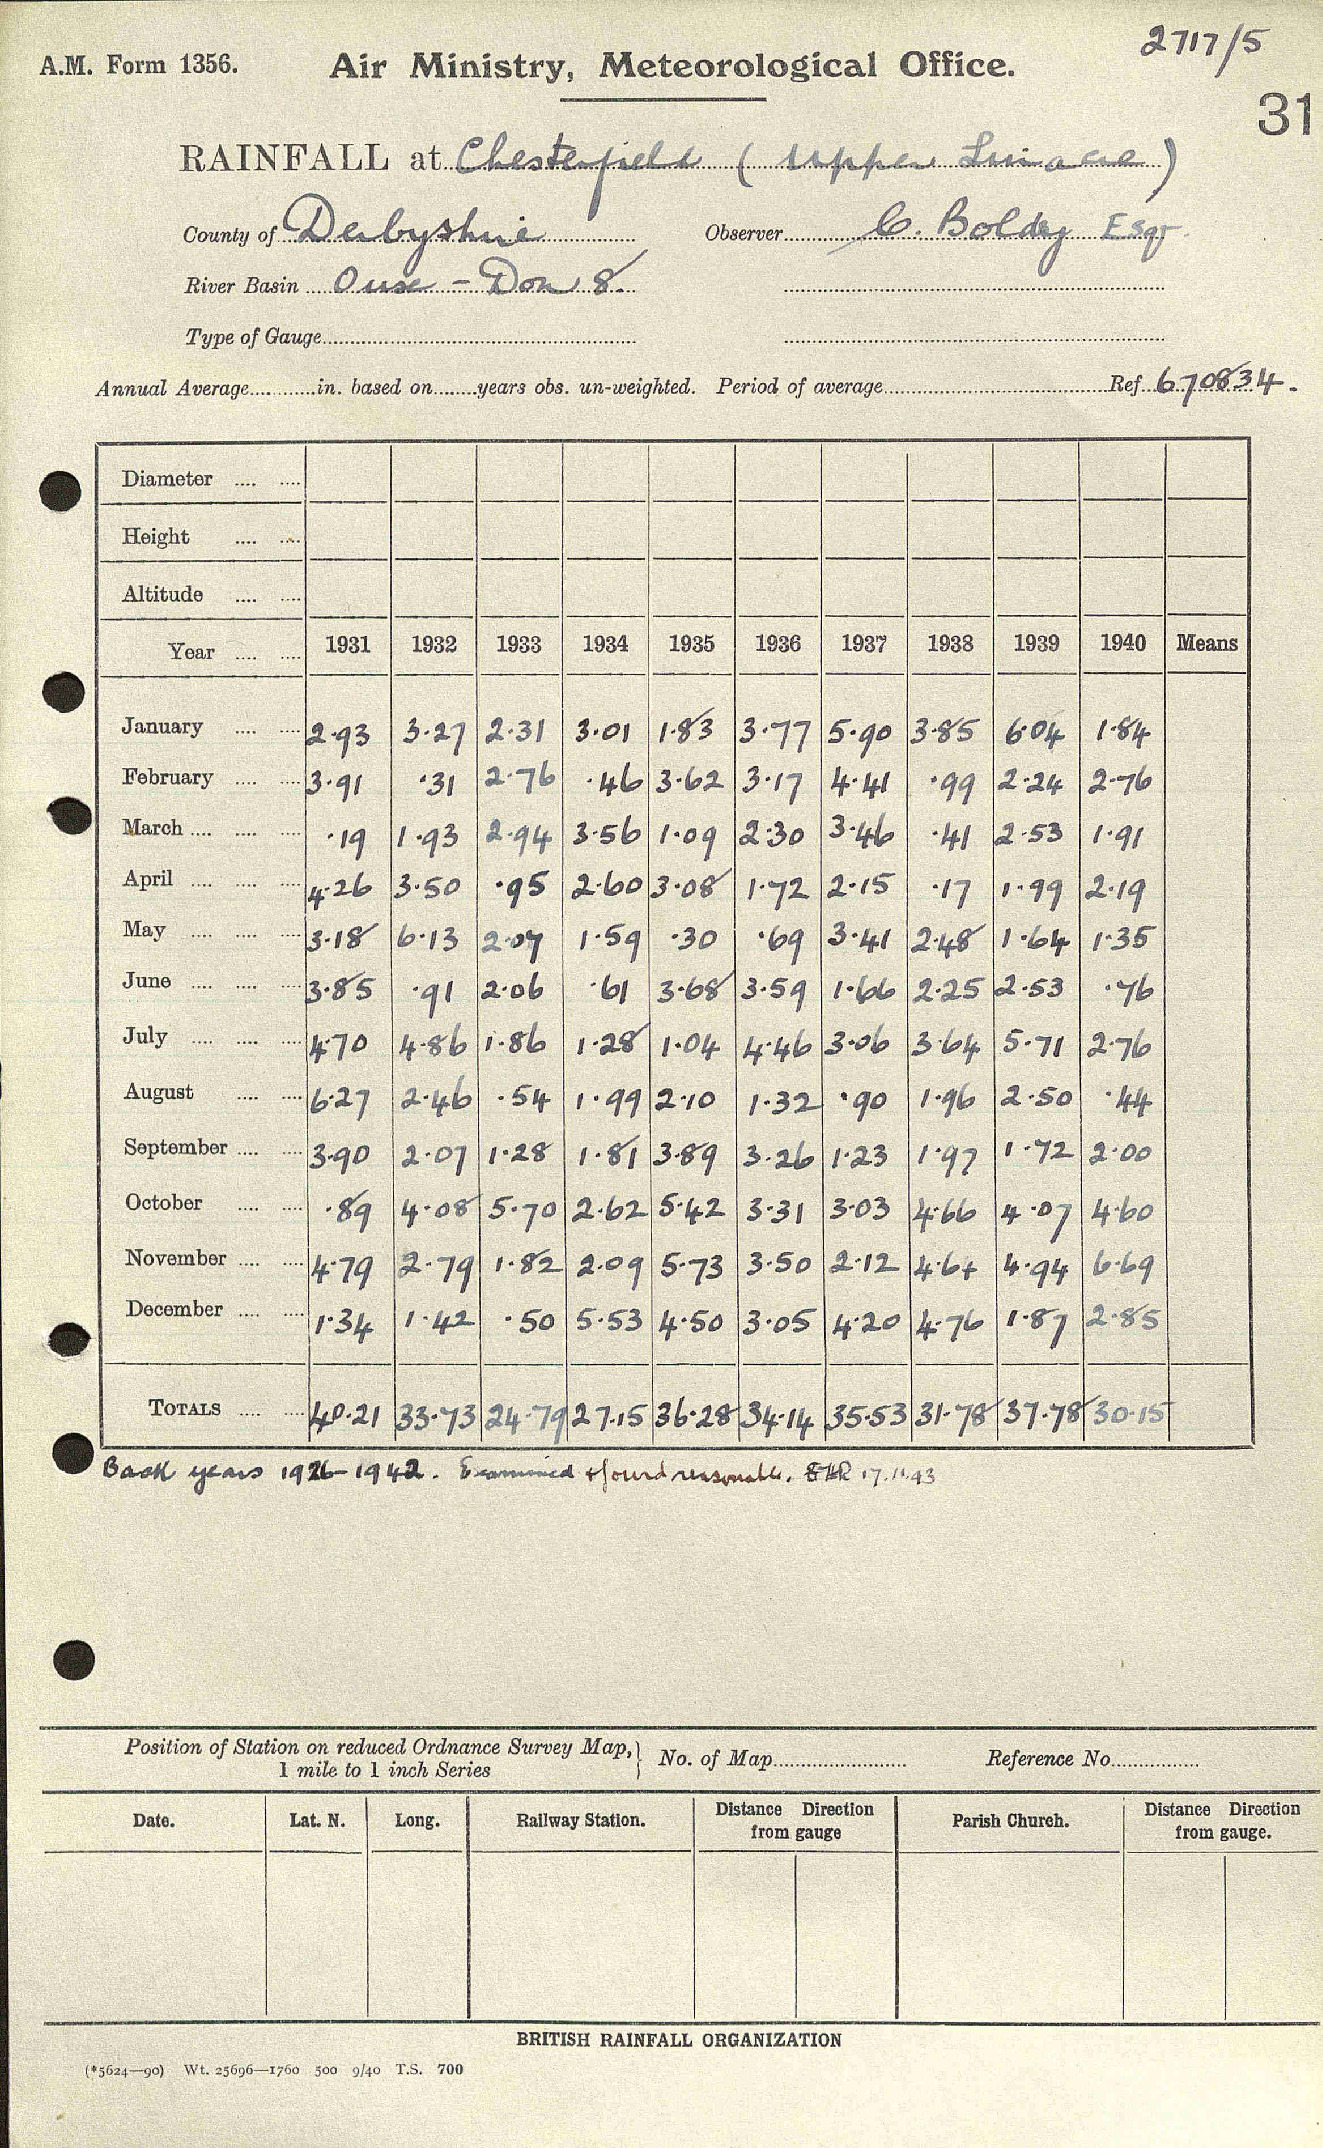 2717/5
A.M. Form 1356. Air Ministry, Meteorological Office.
31
RAINFALL at Chesterfield (Upper Linacre)
County of Derbyshire Observer C. Boldry Esqr
River Basin Ouse - Don 8.
Type of Gauge
Annual Average in. based on years obs. un-weighted. Period of average Ref 670834.
Diameter
Height
Altitude
Year 1931 1932 1933 1934 1935 1936 1937 1938 1939 1940 Means
January 2.93 3.27 2.31 3.01 1.83 3.77 5.90 3.85 6.04 1.84
February 3.91 .31 2.76 .46 3.62 3.17 4.41 .99 2.24 2.76
March .19 1.93 2.94 3.56 1.09 2.30 3.46 .41 2.53 1.91
April 4.26 3.50 .95 2.60 3.08 1.72 2.15 .17 1.99 2.19
May 3.18 6.13 2.07 1.59 .30 .69 3.41 2.48 1.64 1.35
June 3.85 .91 2.06 .61 3.68 3.59 1.66 2.25 2.53 .76
July 4.70 4.86 1.86 1.28 1.04 4.46 3.06 3.64 5.71 2.76
August 6.27 2.46 .54 1.99 2.10 1.32 .90 1.96 2.50 .44
September 3.90 2.07 1.28 1.81 3.89 3.26 1.23 1.97 1.72 2.00
October .89 4.08 5.70 2.62 5.42 3.31 3.03 4.66 4.07 4.60
November 4.79 2.79 1.82 2.09 5.73 3.50 2.12 4.64 4.94 6.69
December 1.34 1.42 .50 5.53 4.50 3.05 4.20 4.76 1.87 2.85
TOTALS 40.21 33.73 24.79 27.15 36.28 34.14 35.53 31.78 37.78 30.15
Back years 1926-1942. Examined & found reasonable. 17.11.43
Position of Station on reduced Ordnance Survey Map, No. of Map Reference No.
1 mile to 1 inch Series
Date. Lat. N. Long. Railway Station. Distance from gauge Direction Parish Church. Distance from gauge. Direction
BRITISH RAINFALL ORGANIZATION
(*5624—90) Wt. 25696—1760 500 9/40 T.S. 700